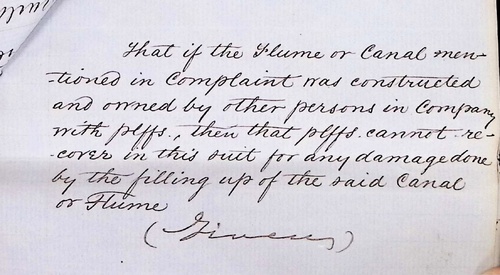 That if the Flume or Canal men-
-tioned in Complaint was constructed
and owned by other persons in Company
with plffs., then that plffs. cannot re-
-cover in this suit for any damage done
by the filling up of the said Canal
or Flume
(Given)